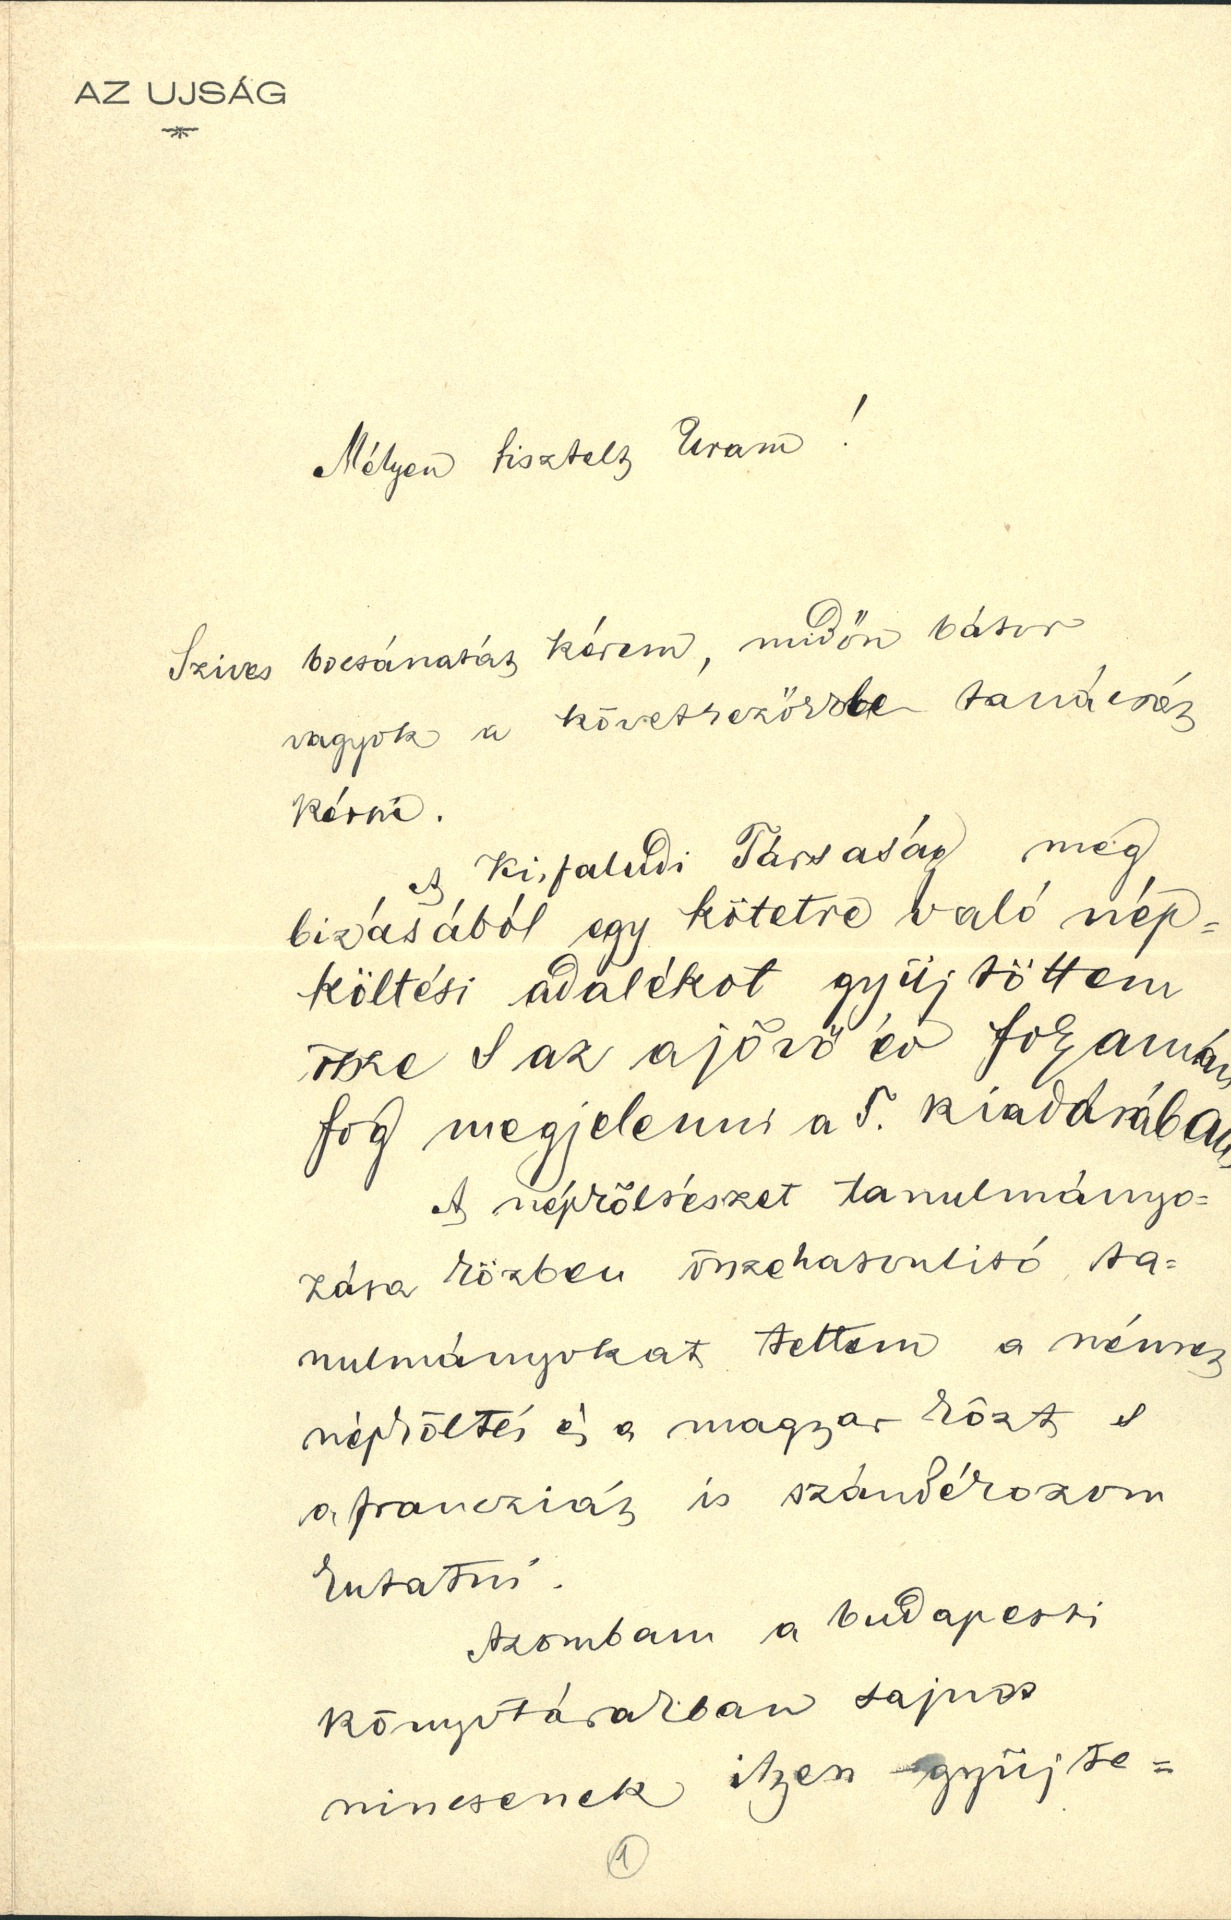 AZ UJSÁG
Mélyen tisztelt Uram!
Szives bocsánatát kérem, midőn bátor
vagyok a következőkbe tanácsát
kérni.
A Kisfaludi Társaság meg
bizásából egy kötetre való nép=
költési adalékot gyüjtöttem
össze s az a jövő év folyamán
fog megjelenni a T. kiadásában
A népköltészet tanulmányo=
zása közben összehasonlitó ta=
nulmányokat tettem a német
népköltés és a magyar közt s
a francziát is szándékozom
kutatni.
Azomban a budapesti
könyvtárakban sajnos
nincsenek ilyen gyüjte=
1